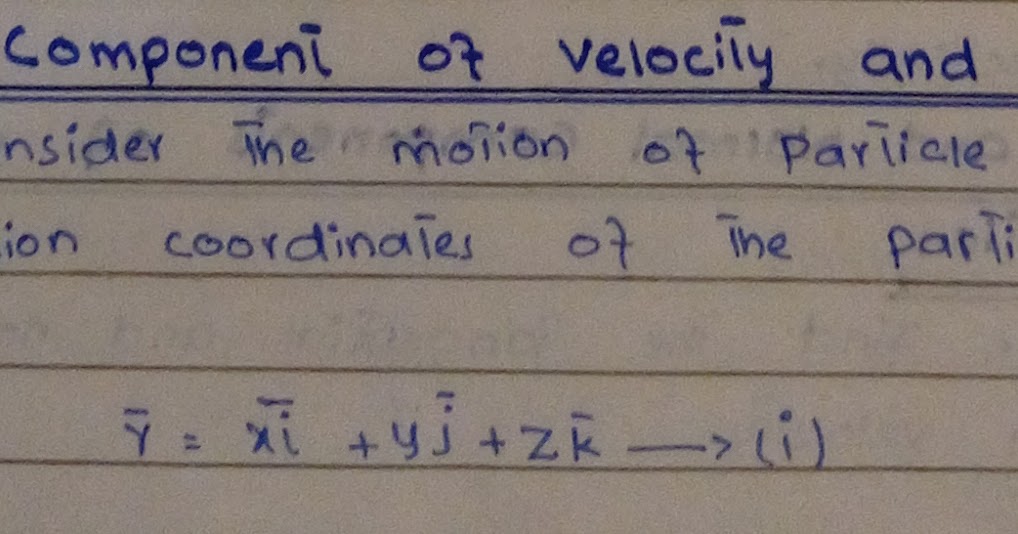 Component of velocity and
nsider the motion of particle
ion coordinates of the parti
r̄ = xī + yj̄ + zk̄ → (i)